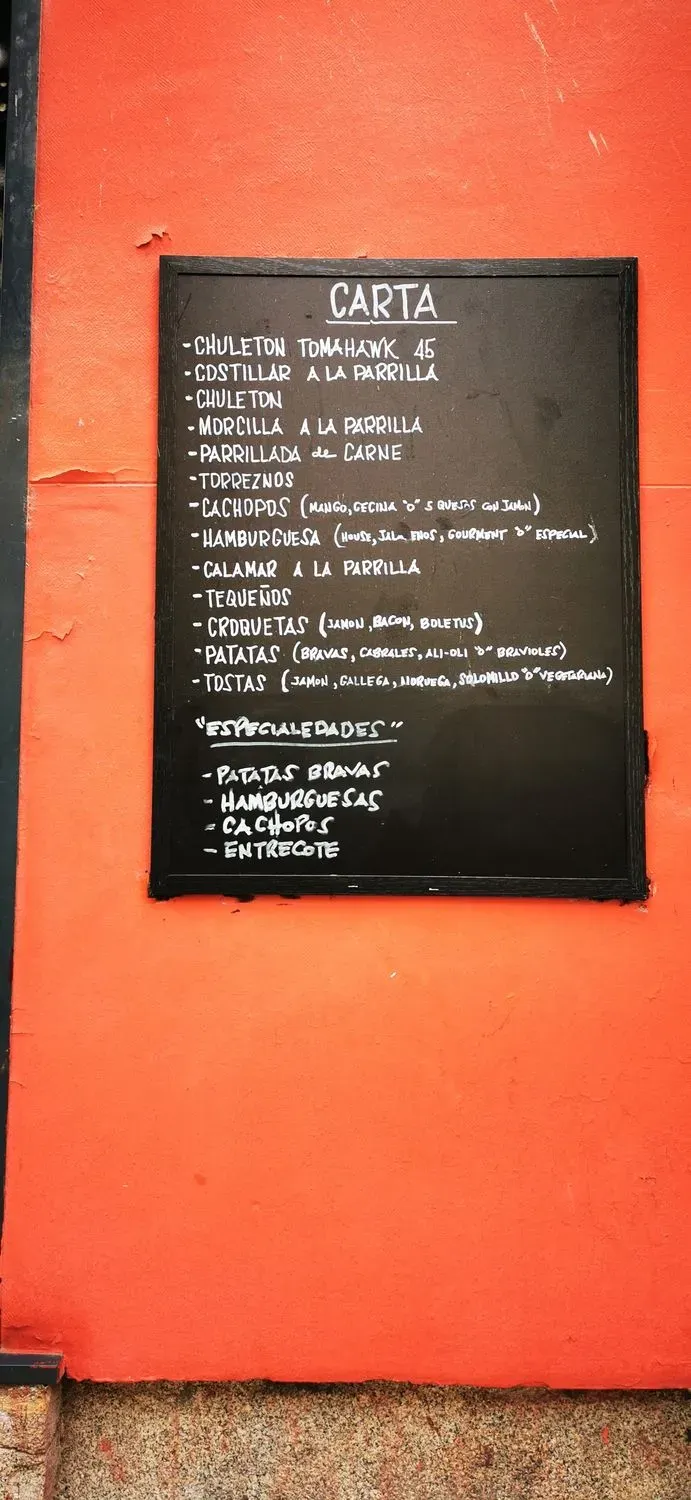 CARTA
-CHULETON TOMAHAWK 45
-COSTILLAR A LA PARRILLA
-CHULETON
-MORCILLA A LA PARRILLA
-PARRILLADA de CARNE
-TORREZNOS
-CACHOPOS (MANGO, CECINA "O" 5 QUESOS CON JAMON)
-HAMBURGUESA (HOUSE, JALA ENOS, GOURMENT "O" ESPECIAL)
-CALAMAR A LA PARRILLA
-TEQUEÑOS
-CROQUETAS (JAMON, BACON, BOLETUS)
-PATATAS (BRAVAS, CABRALES, ALI-OLI "O" BRAVIOLES)
-TOSTAS (JAMON, GALLEGA, NORUEGA, SOLOMILLO "O" VEGETARIANA)
"ESPECIALEDADES"
-PATATAS BRAVAS
-HAMBURGUESAS
-CACHOPOS
-ENTRECOTE